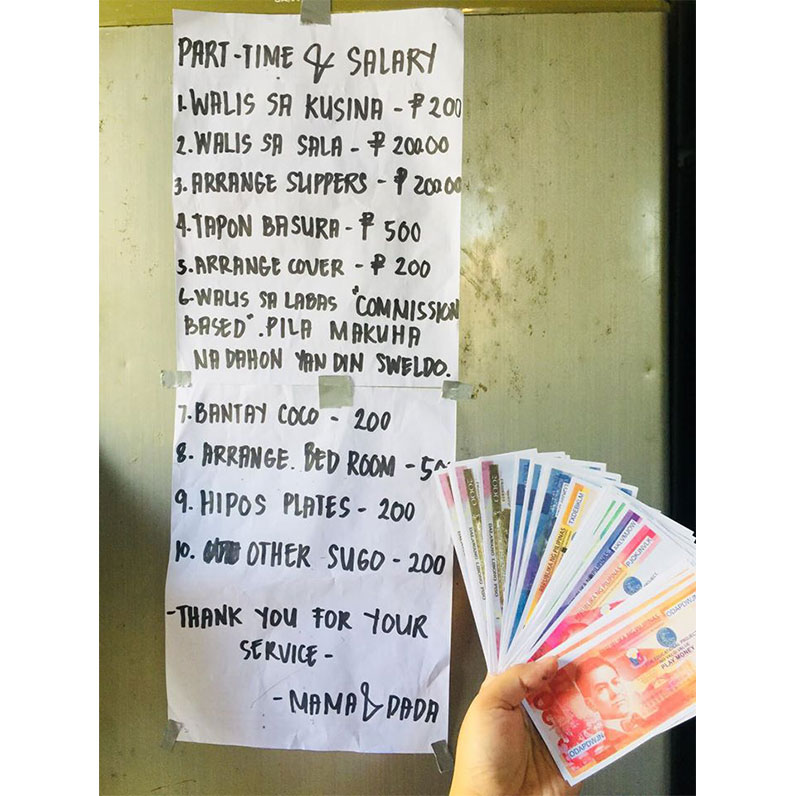 PART-TIME & SALARY
1. WALIS SA KUSINA - ₱200
2. WALIS SA SALA - ₱200.00
3. ARRANGE SLIPPERS - ₱200.00
4. TAPON BASURA - ₱ 500
5. ARRANGE COVER - ₱ 200
6. WALIS SA LABAS "COMMISSION
BASED". PILA MAKUHA
NA DAHON YAN DIN SWELDO.
7. BANTAY COCO - 200
8. ARRANGE. BED ROOM -
9. HIPOS PLATES - 200
10. OTHER SUGO - 200
-THANK YOU FOR YOUR
SERVICE-
- MAMA & DADA
2000
2000
REPUBLIKA NG PILIPINAS
TXDEBKLM
REPUBLIKA NG PILIPINAS
REPUBLIKA NG PILIPINAS
PLAY MONEY
ODAPDWJN
ODAPDWJN